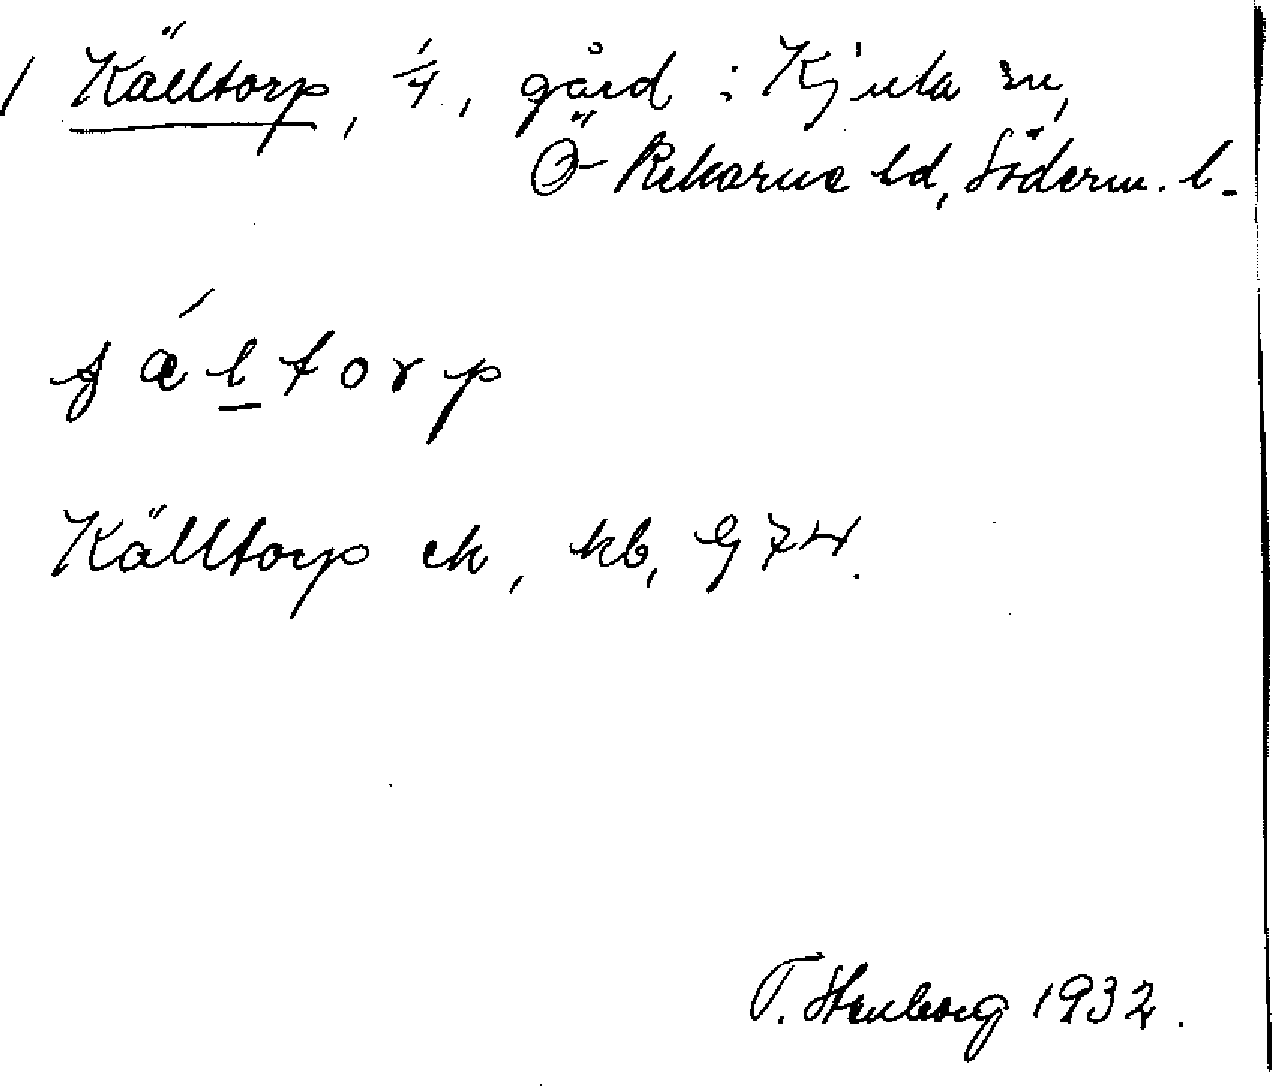 1 Källtorp, 1/4, gård i Kjula sn,
Ö Rekarne hd, Söderm. l.
Källtorp ek, kb, G 74.
T. Stenborg 1932.